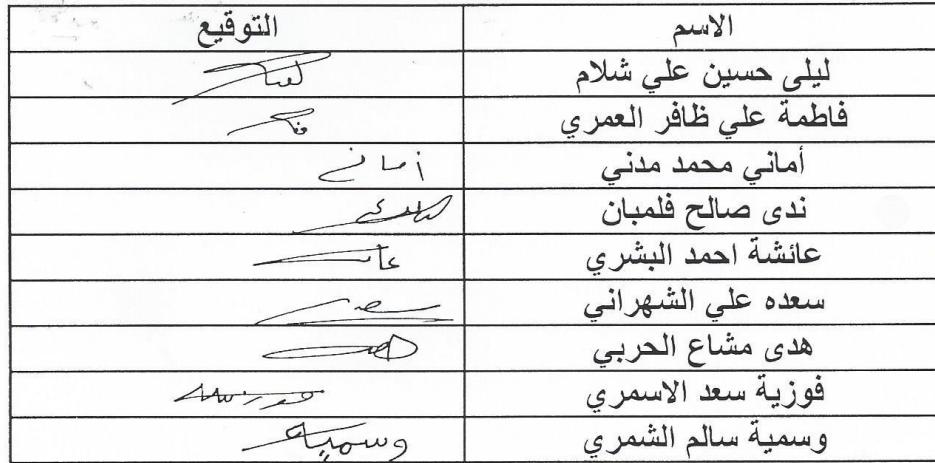 الاسم التوقيع
ليلى حسين علي شلام
فاطمة علي ظافر العمري
أماني محمد مدني أماني
ندى صالح فلمبان
عائشة احمد البشري
سعده علي الشهراني
هدى مشاع الحربي
فوزية سعد الاسمري
وسمية سالم الشمري وسمية